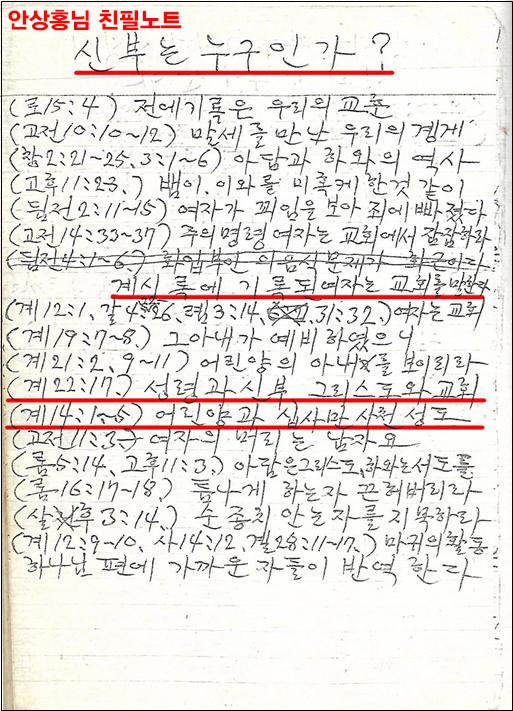 안상홍님 친필노트
신부는 누구인가?
(로15:4) 전에기록은 우리의 교훈
(고전10:10~12) 말세를 만난 우리의 경게
(창2:21~25, 3:1~6) 아담과 하와의 역사
(고후11:23,) 뱀이, 이와를 미혹케 한것 같이
(딤전2:11~15) 여자가 꾀임을 보아 죄에 빠졌다
(고전14:33~37) 주의 명령 여자는 교회에서 잠잠하라
(딤전4:1~6,) 음식문제가
계시록에 기록된여자는 교회를 말한다
(계12:1, 갈4 26, 렘3:14, 31:32,) 여자는 교회
(계19:7~8,) 그아내가 예비하였으니
(계21:2, 9~11) 어린양의 아내를 보이리라
(계22:17,) 성령과 신부 그리스도와 교회
(계14:1~5) 어린양과 십사만 사천 성도
(고전11:3,) 여자의 머리는 남자요
(롬-5:14, 고후11:3,) 아담은그리스도, 하와는성도를
(롬-16:17~18,) 틈나게 하는자 끈허버리라
(살후3:14,) 순종치 안는자를 지목하라
(계12:9~10, 사14:12, 겔28:11~17,) 마귀의활동
하나님 편에 가까운 자들이 반역 한다